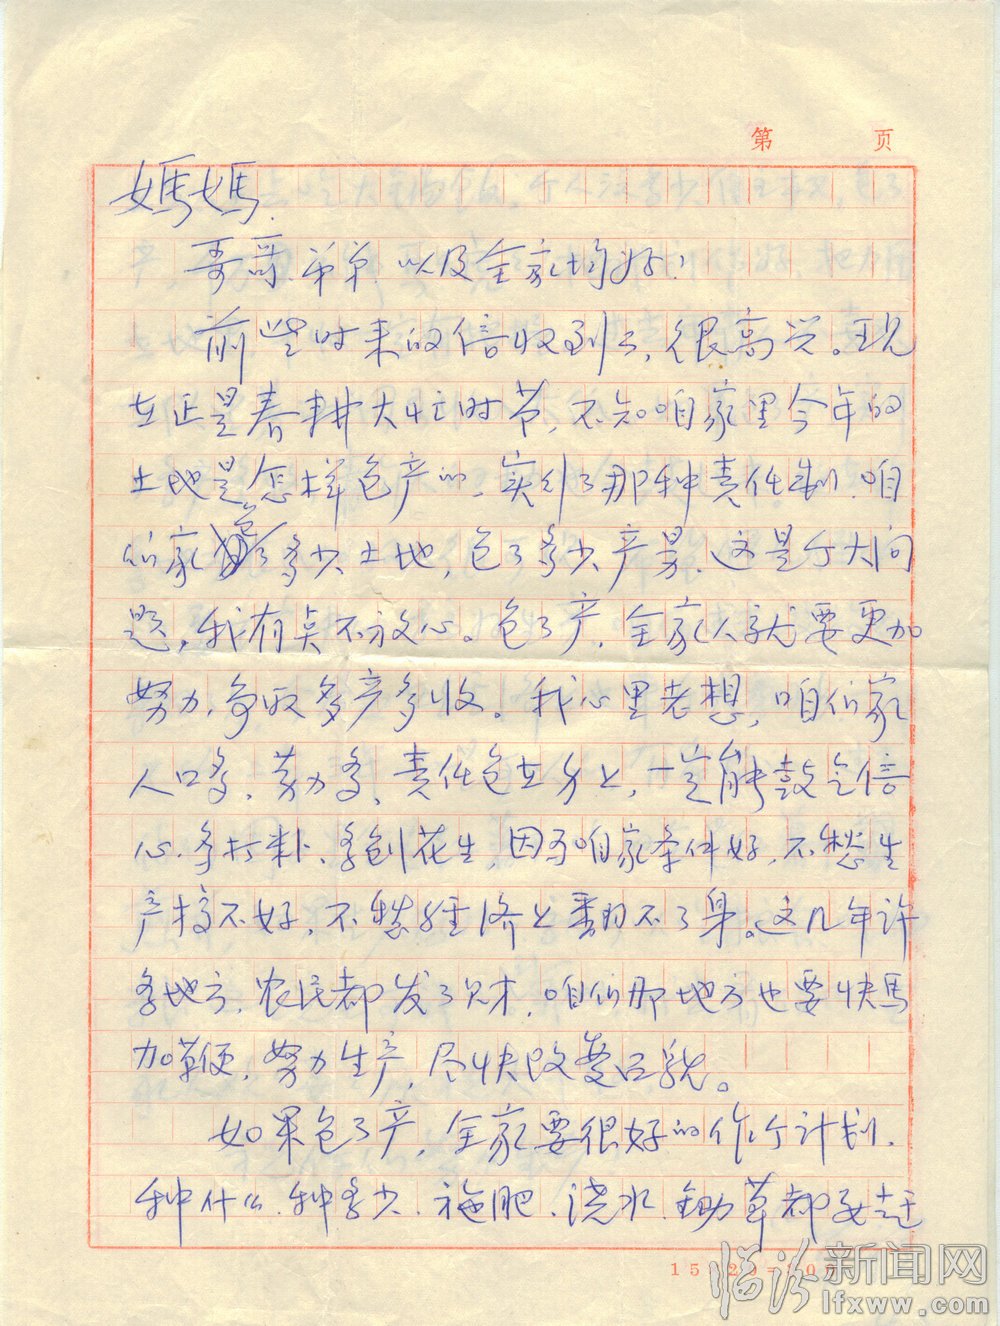 第 页
媽媽.
哥哥弟弟以及全家均好!
前些时来的信收到了,很高兴。现
在正是春耕大忙时节,不知咱家里今年的
土地是怎样包产的,实行了那种责任制,咱
们家包了多少土地,包了多少产量,这是个大问
题,我有点不放心。包了产,全家人就要更加
努力,争取多产多收。我心里老想,咱们家
人口多,劳力多,责任包在身上,一定能鼓足信
心,多打粮,多创花生,因为咱家条件好,不愁生
产搞不好,不愁经济上翻不了身。这几年许
多地方,农民都发了财,咱们那地方也要快馬
加鞭,努力生产,尽快改变面貌。
如果包了产,全家要很好的作个计划,
种什么,种多少,施肥,浇水,锄草都要赶
15×20=300
临汾新闻网
lfxww.com